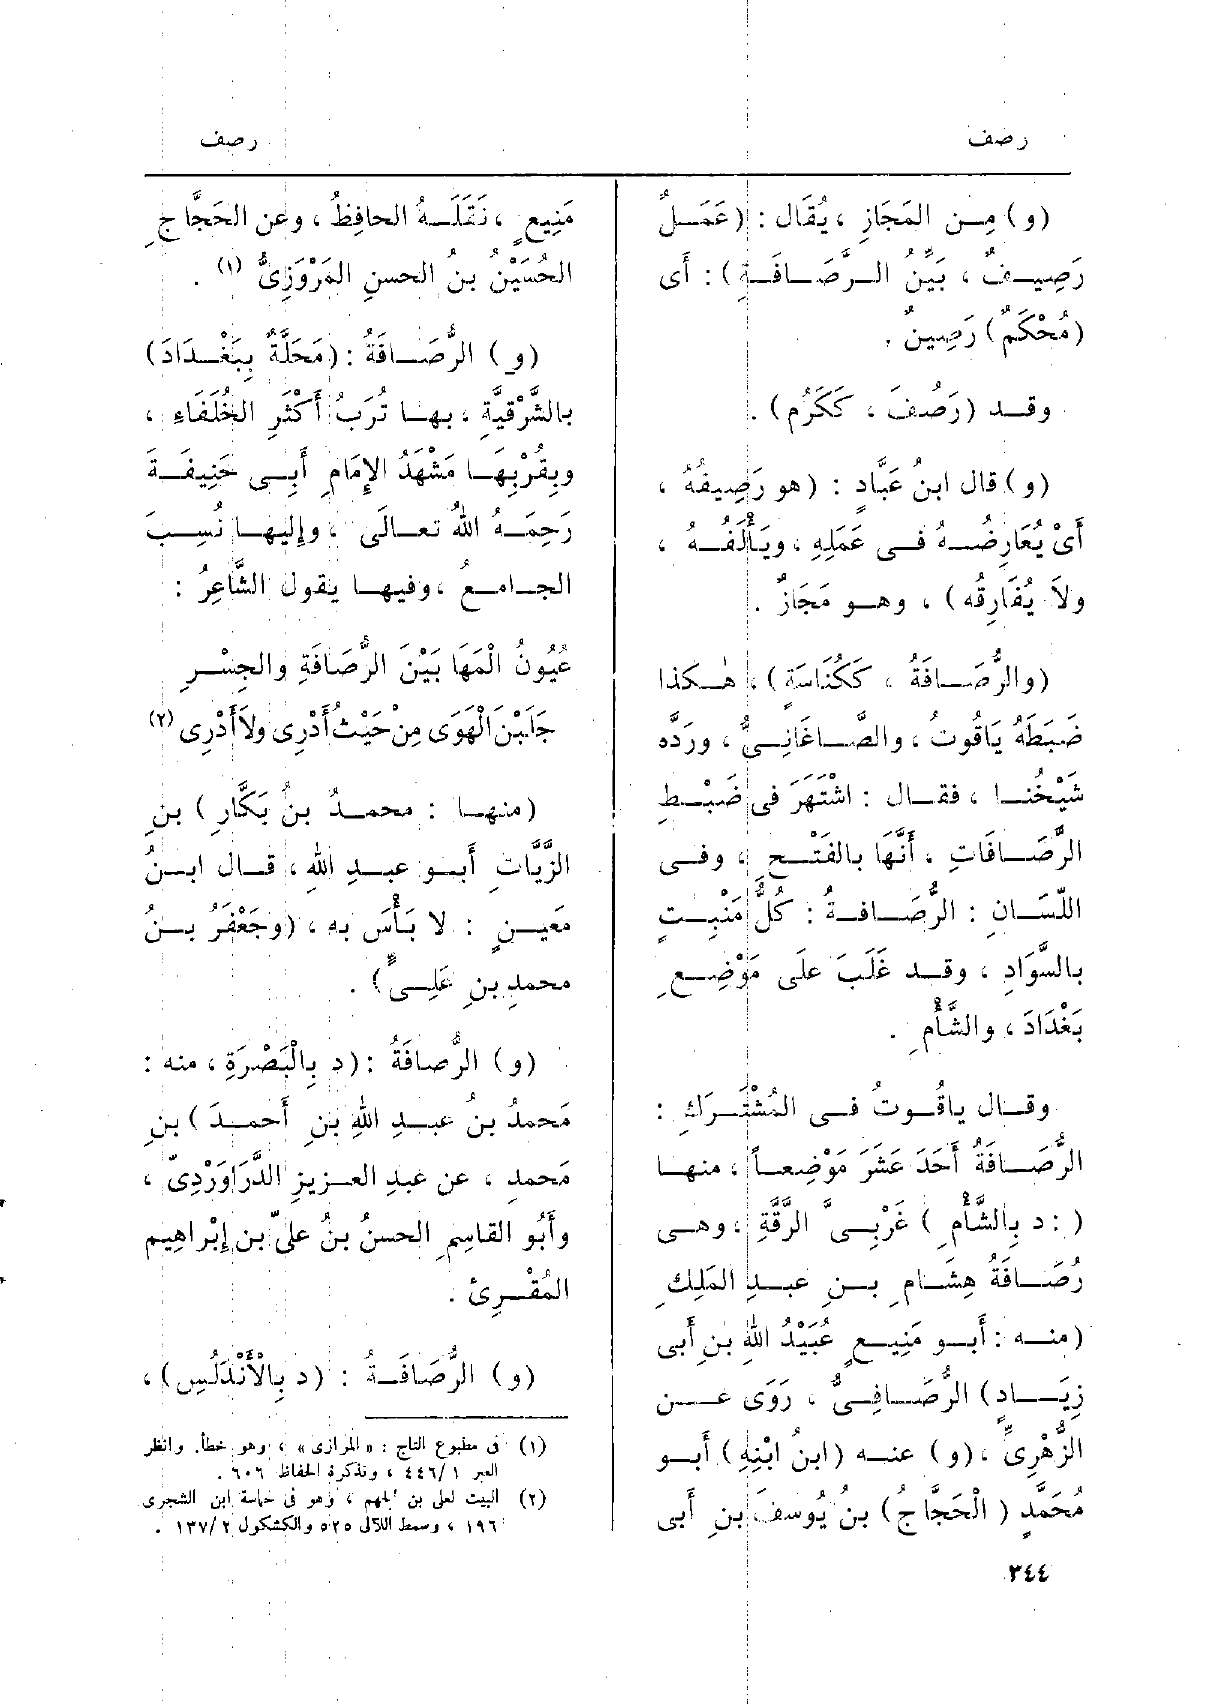 رصف
رصف
(و) مِـن المَجَازِ ، يُقَال : (عَمَـلٌ
رَصِيـفٌ ، بَيِّنُ الـرَّصَـافَـةِ) : أَى
(مُحْكَمٌ) رَصِينٌ .
وقـد (رَصُفَ ، كَكَرُم) .
(و) قال ابنُ عَبَّادٍ : (هو رَصِيفُهُ ،
أَىْ يُعَارِضُـهُ فـى عَمَلِهِ ، ويَأْلَفُـهُ ،
ولاَ يُفَارِقُه) ، وهـو مَجَازٌ .
(والرُّصَـافَةُ ، كَكُنَاسَةٍ) ، هٰـكذا
ضَبَطَهُ يَاقُوتُ ، والصَّـاغَانِـىُّ ، وردَّه
شَيْخُنـا ، فقـال : اشْتَهَرَ فى ضَبْـطِ
الرَّصَـافَاتِ ، أَنَّهَا بالفَتْـحِ ، وفـى
اللِّسَـانِ : الرُّصَـافـةُ : كُلُّ مَنْبِـتٍ
بالسَّوَادِ ، وقـد غَلَبَ علَى مَوْضِـعِ
بَغْدَادَ ، والشَّأْمِ .
وقـال ياقُـوتُ فـى المُشْتَـرَكِ :
الرُّصَـافَةُ أَحَدَ عَشَرَ مَوْضِعـاً ، منهـا
( : د بِالشَّأْمِ ) غَرْبِـىَّ الرَّقَّةِ ، وهـى
رُصَـافَةُ هِشَـامِ بـنِ عبـدِ المَلِكِ
(منـه : أَبـو مَنِيـعٍ عُبَيْدُ اللهِ بن أَبى
زِيَـادٍ) الرُّصَـافِـىُّ ، رَوَى عـن
الزُّهْرِىِّ ، (و) عنـه (ابنُ ابْنِهِ) أَبـو
مُحَمَّدٍ ( الْحَجَّاجُ ) بنُ يُوسفَ بنِ أَبى
مَنِيعٍ ، نَقَلَـهُ الحافِظُ ، وعن الحَجَّاجِ
الحُسَيْنُ بنُ الحسنِ المَرْوَزِىُّ (١) .
(و) الرُّصَـافَةُ : (مَحَلَّةٌ بِبَغْـدَادَ)
بالشَّرْقِيَّةِ ، بهـا تُرَبُ أَكْثَرِ الخُلَفَاءِ ،
وبِقُرْبِهَـا مَشْهَدُ الإِمَامِ أَبِـى حَنِيفَـةَ
رَحِمَـهُ اللهُ تعـالَى ، وإليهـا نُسِـبَ
الجـامـعُ ، وفيهـا يقول الشَّاعِرُ :
عُيُونُ الْمَهَا بَيْنَ الرُّصَافَةِ والجِسْـرِ
جَلَبْنَ الْهَوَى مِنْ حَيْثُ أَدْرِى ولاَ أَدْرِى (٢)
(منهـا : محمـدُ بنُ بَكَّارِ ) بنِ
الزَّيَّاتِ أَبـو عبـدِ اللهِ ، قـال ابـنُ
مَعيـنٍ : لا بَأْسَ به ، (وجَعْفَرُ بـنُ
محمدِ بنِ عَلِـىٍّ) .
(و) الرُّصافَةُ : (د بِالْبَصْرَةِ ، منه :
مَحمدُ بنُ عبـدِ اللهِ بنِ أَحمـدَ ) بنِ
مَحمدِ ، عن عبدِ العـزيزِ الدَّرَاوَرْدِىِّ ،
وأَبُو القاسِمِ الحسنُ بنُ علىِّ بنِ إبْراهِيم
المُقْـرِئُ .
(و) الرُّصَافَـةُ : (د بِالأَنْدَلُسِ) ،
(١) فى مطبوع التاج : « المرازى » ، وهو خطأ. وانظر
العبر ١ /٤٤٦ ، وتذكرة الحفاظ ٦٠٦ .
(٢) البيت لعلى بن الجهم ، وهو فى حماسة ابن الشجرى
١٩٦ ، وسمط اللآلى ٥٢٥ والكشكول ٢ /١٣٧ .
٣٤٤